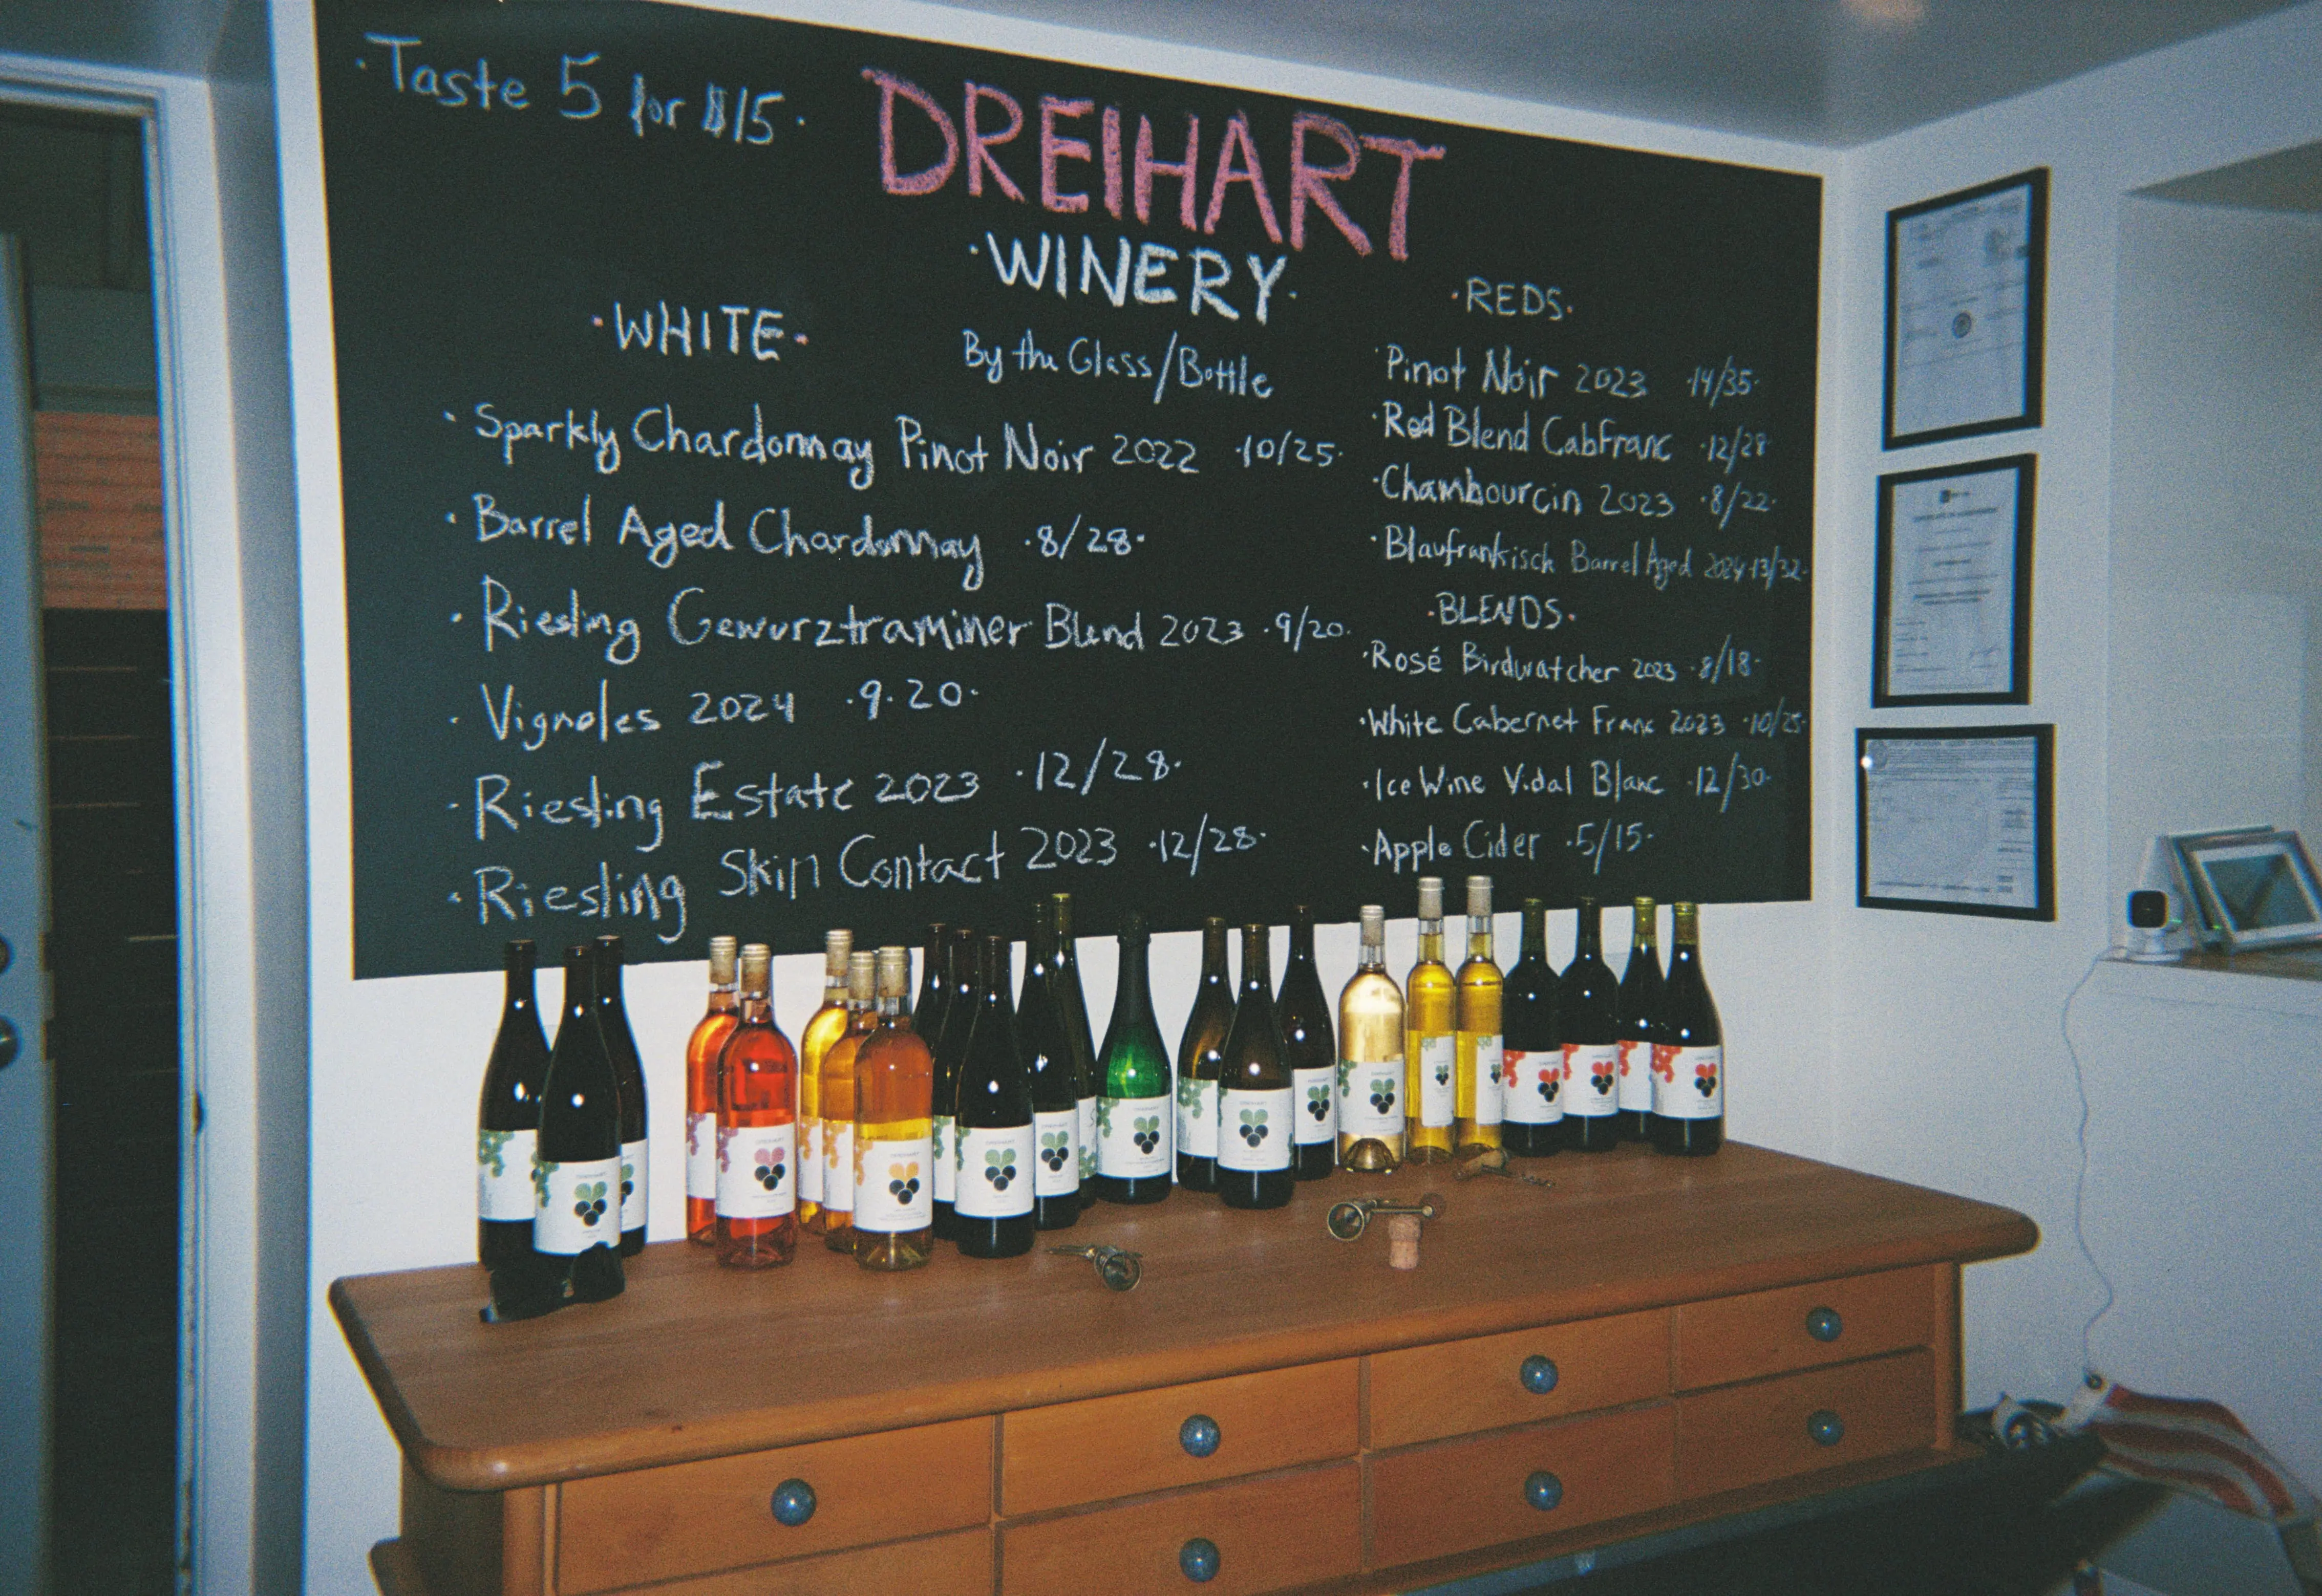 ·Taste 5 for $15·
DREIHART
·WINERY·
By the Glass/Bottle
·WHITE·
·Sparkly Chardonnay Pinot Noir 2022 ·10/25·
·Barrel Aged Chardonnay ·8/28·
·Riesling Gewurztraminer Blend 2023 ·9/20·
·Vignoles 2024 ·9·20·
·Riesling Estate 2023 ·12/28·
·Riesling Skin Contact 2023 ·12/28·
·REDS·
·Pinot Noir 2023 ·14/35·
·Red Blend CabFranc ·12/28
·Chambourcin 2023 ·8/22·
·Blaufrankisch Barrel Aged 2024·13/32·
·BLENDS·
·Rosé Birdwatcher 2023 ·8/18·
·White Cabernet Franc 2023 ·10/25·
·Ice Wine Vidal Blanc ·12/30·
·Apple Cider ·5/15·